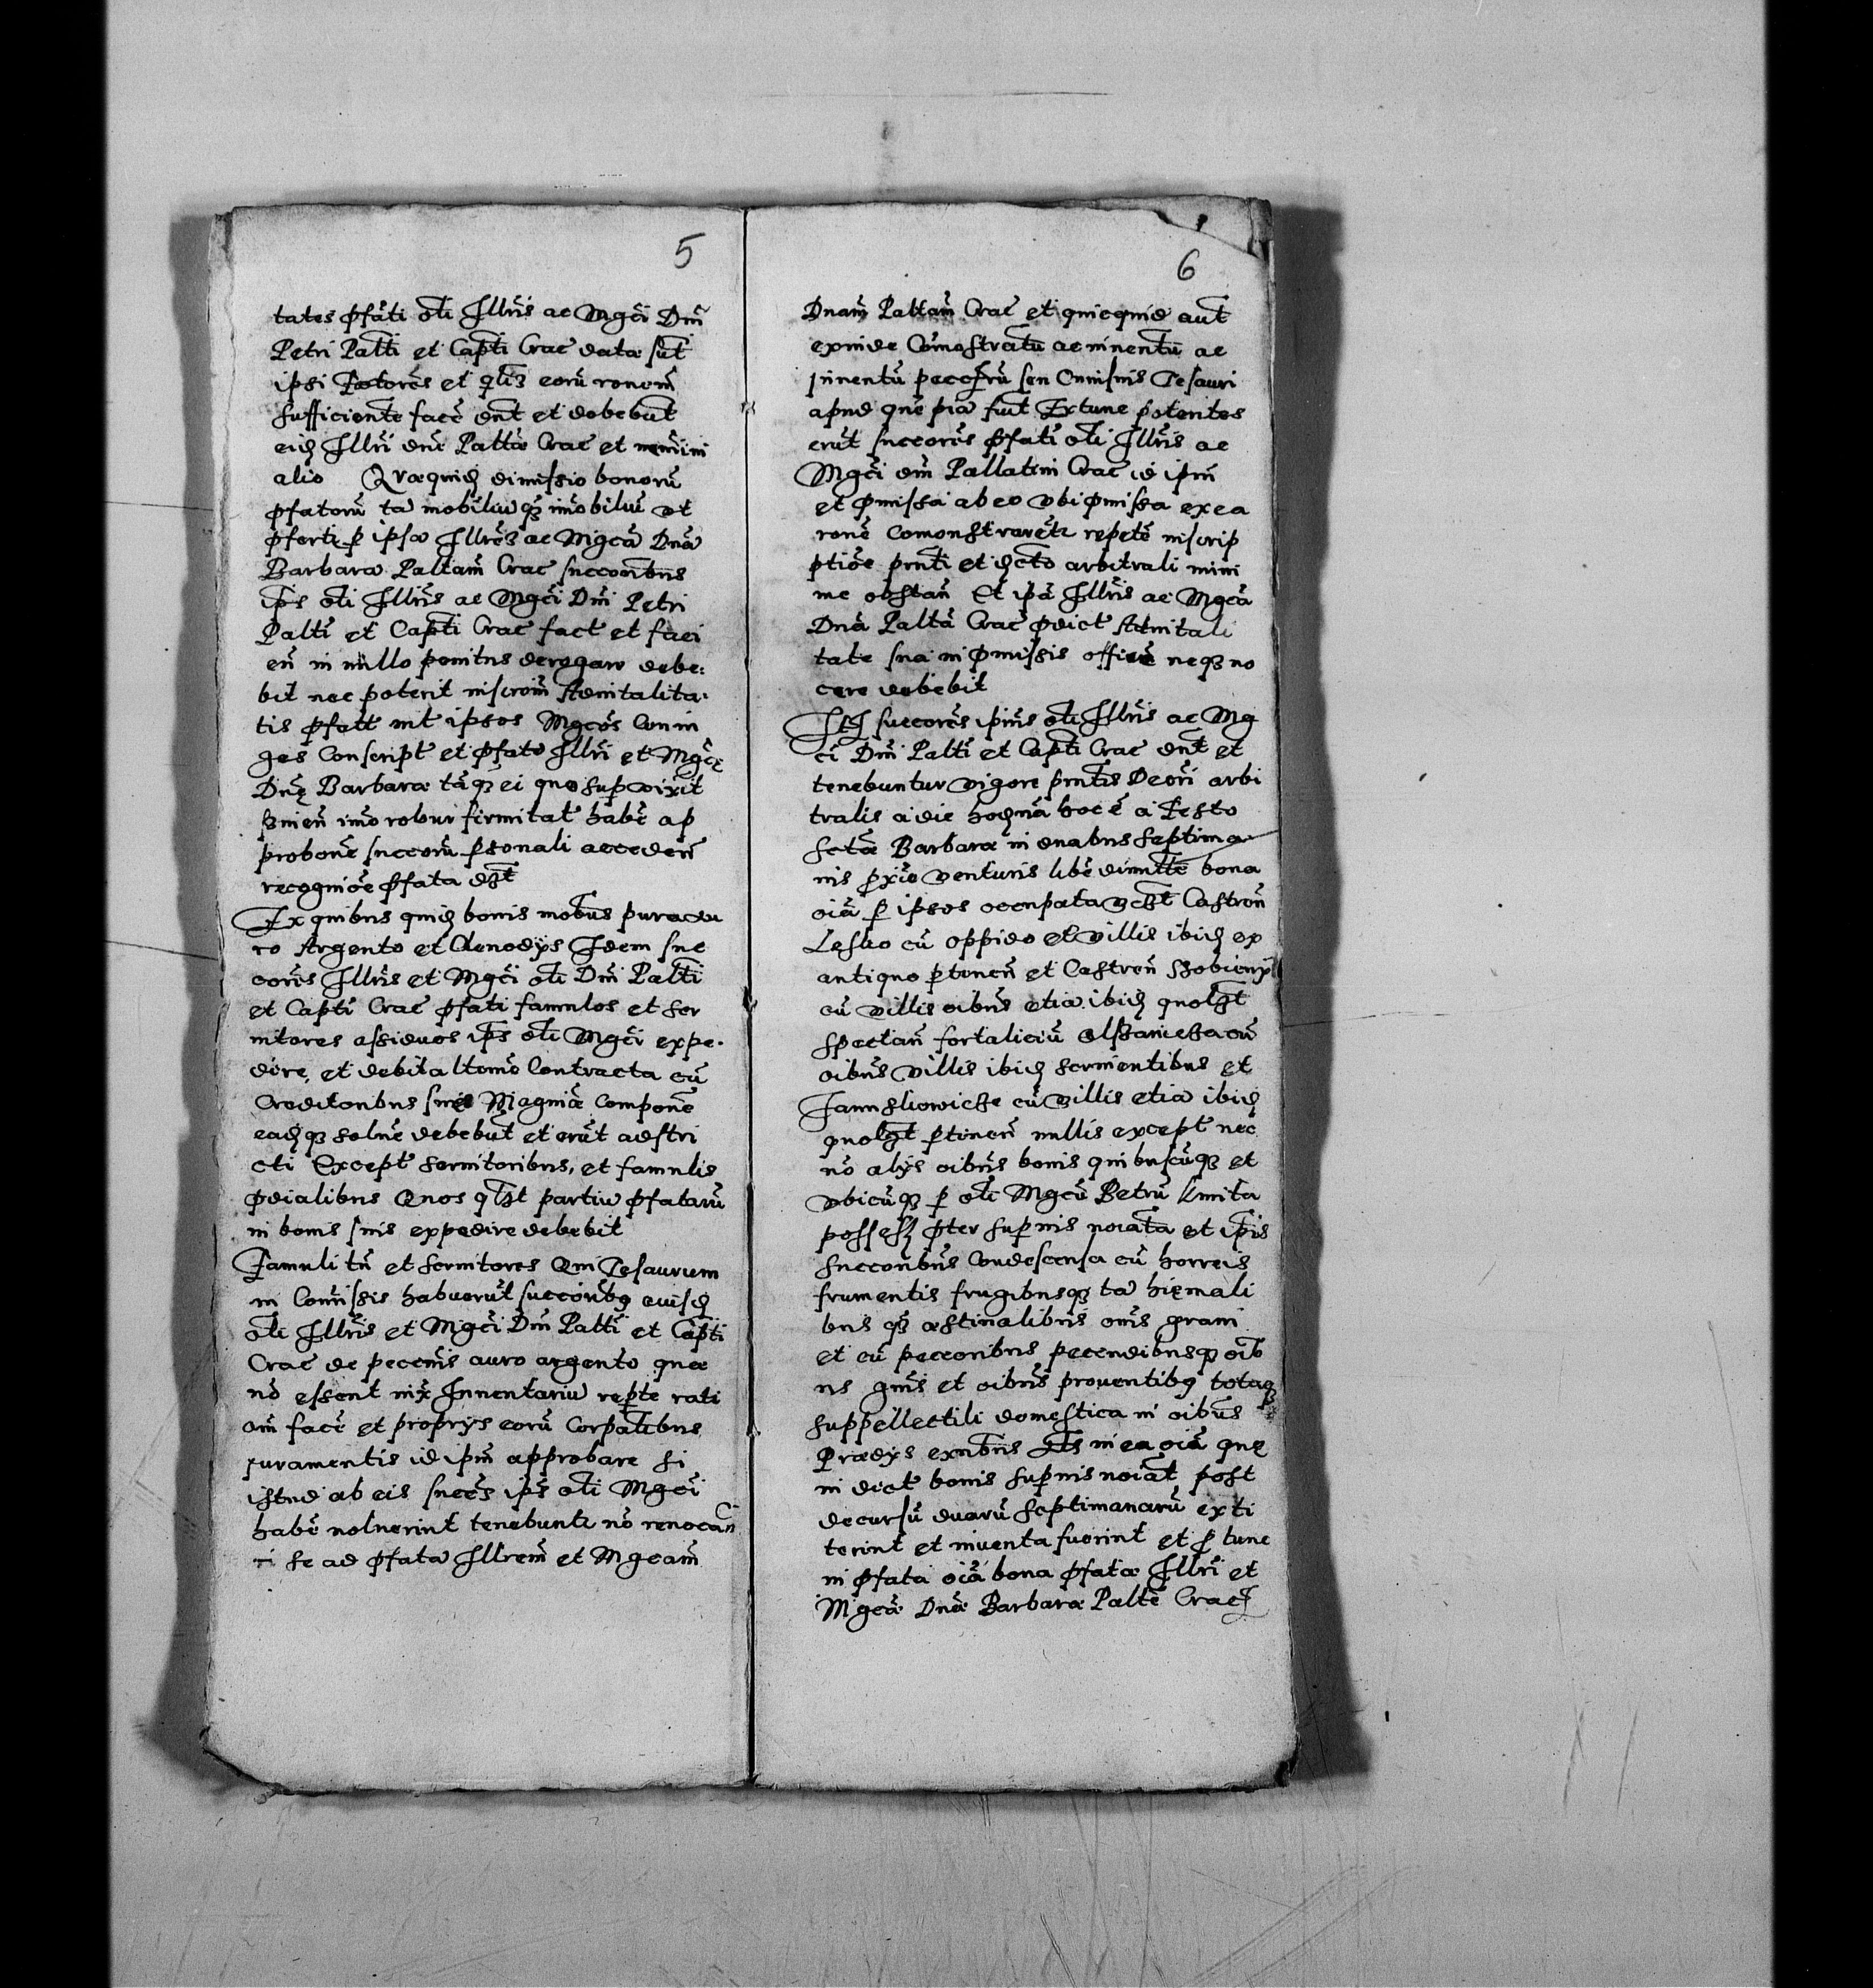 5
tates pfati oli Jllris ac Mgci Dni
Petri Palti et Capti Crac data sut
ipsi Factores et qlis eorũ ronem
sufficiente facẽ dnt et debebut
eid Jllri dne Palta Crac et nemini
alio Quæquid dimissio bonorũ
pfatorũ ta mobiliũ qz imobiliũ ut
pfert p ipsã Jllrẽs ac Mgcã Dnã
Barbara Paltam Crac succoribus
ips oli Jllris ac Mgci Dni Petri
Palti et Capti Crac fact et faci
en in nullo penitus derogare debe:
bit nec poterit inscrõm Advitalita:
tis pfatt int ipsos Mgcos Conin
ges Conscript et pfate Jllri et Mgcę
Dnę Barbara tãqz ei que supvixit
servien imo robur firmitat habẽ ap
probone succorũ psonali acceden
recognicõe pfata dzt
Ex quibus quid bonis mobus pura au
ro Argento et Clenodys Idem suc
cores Jllris et Mgci oli Dni Palti
et Capti Crac pfati famulos et ser
vitores assiduos ips oli Mgci expe:
dire, et debita ltimõ Contracta cũ
Creditoribus suis Magnia componẽ
eadqz soluẽ debebut et erũt adstri
cti Except servitoribus, et famulis
pdialibus Quos qlzt partiũ pfatarũ
in bonis suis expedire debebit
Famuli tñ et servitores Qui Tesaurum
in Comissis habuerũt succoribz euisd
oli Jllris et Mgci Dni Palti et Capti
Crac de pecenis auro argento quæ
nõ essent iux Inuentariũ repte rati
om facẽ et proprys eorũ corpalibus
juramentis id ipm approbare si
istud ab eis succes ips oli Mgci
habẽ noluerint tenebunt nõ reuocan
ti se ad pfata Jllrem et Mgcam
6
Dnam Paltam Crac et quicquid aut
exinde Comostratũ ac inuentũ ac
Jnnentũ peccorũ seu Omissuis Tesauri
apud quẽ pia fuit Extunc potentes
erũt succores pfati oli Jllris ac
Mgci dni Pallatini Crac id ipm
et pmissa ab eo ubi pmissa ex ea
ronẽ comonstraret repetẽ inscrip
ptiõe pnti et dcto arbitrali mini
me obstan Et ipã Jllris ac Mgca
Dna Palta Crac pdict Advitali
tate sua in pmissis officẽ neqz no
cere debebit
Jtd succores ipius oli Jllris ac Mg
ci Dni Palti et Capti Crac dnt et
tenebuntur vigore pntis Decri arbi
tralis a die hodna hoc ẽ a Festo
Sctæ Barbara in duabus septima
nis pxio venturis libẽ dimittẽ bona
oiã p ipsos occupata vdzt Castron
Lesko cũ oppido et villis ibid ex
antiquo ptinen et Castron Ssobieny
cũ villis oibus etiã ibid quolzt
spectan fortaliciũ Olssanicza cũ
oibus villis ibid seruientibus et
Jannsliowicze cũ villis etiã ibid
quolzt ptinen nullis except nec
nõ alys oibus bonis quibuscũqz et
ubicũqz p oli Mgcũ Petrũ kmita
possess pter supius noiata et ipis
succoribus condescensa cũ horreis
frumentis frugibusqz ta hięmali
bus qz æstiualibus ois grani
et cũ peccoribus pecudibusqz oib
us gnis et oibus prouentibz totaqz
suppellectili domestica in oibus
Prædys exntibus Its in ea oiã quę
in dict bonis supius noiat post
decursũ duarũ septimanarũ exti
terint et inventa fuerint et p tunc
in pfata oiã bona pfata Jllri et
Mgcæ Dnæ Barbara Palte Crac